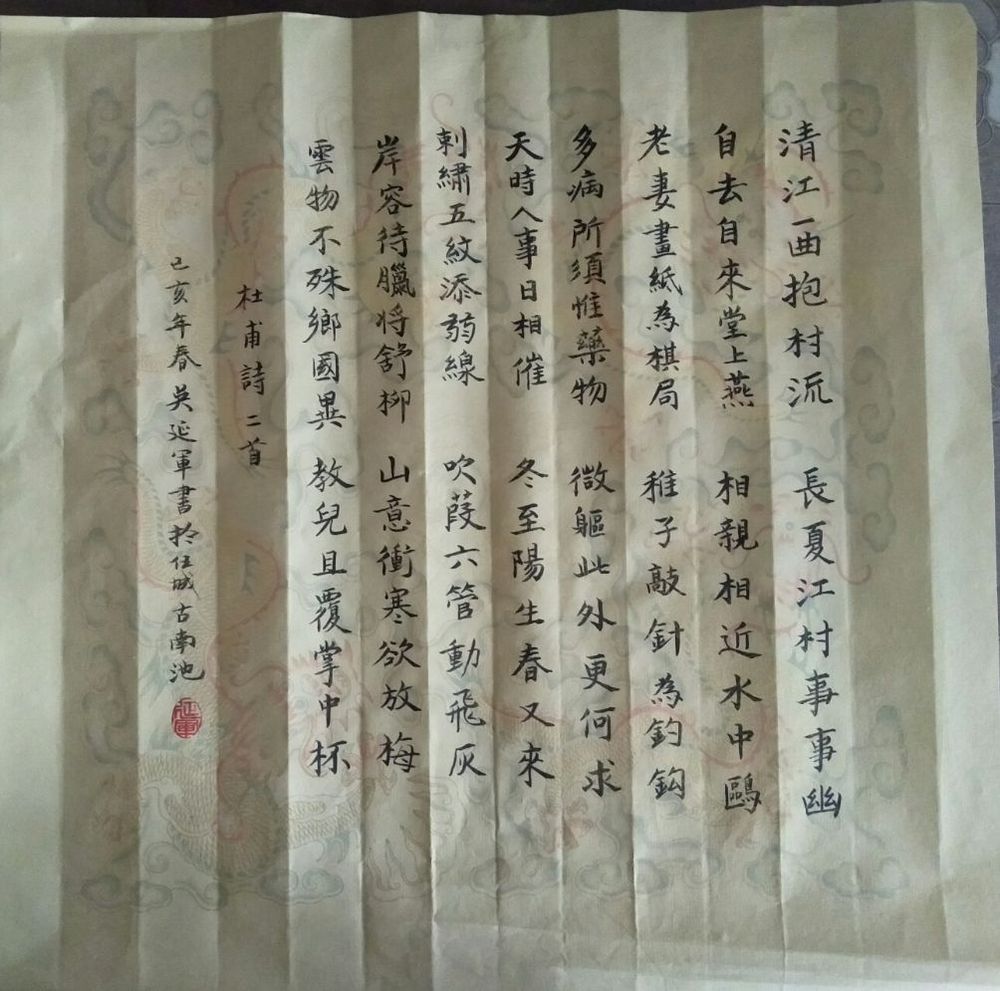 清江一曲抱村流 長夏江村事事幽
自去自來堂上燕 相親相近水中鷗
老妻畫紙為棋局 稚子敲針為釣鈎
多病所須惟藥物 微軀此外更何求
天時人事日相催 冬至陽生春又來
刺繡五紋添弱線 吹葭六管動飛灰
岸容待臘将舒柳 山意衝寒欲放梅
雲物不殊鄉國異 教兒且覆掌中杯
杜甫詩二首
己亥年春吳延軍書於任城古南池
延軍